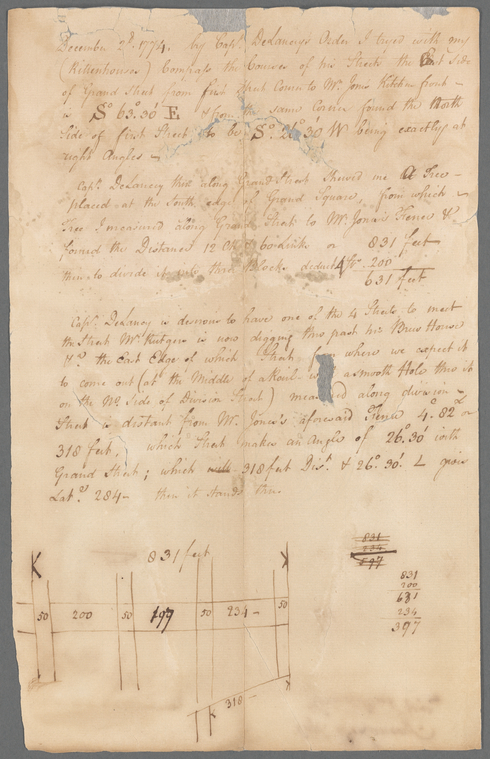 December 2d. 1774. by Capt. Delancey's Order I tryed with my
(Rittenhouse) Compass the Courses of his Streets the East Side
of Grand Street from first Street Corner to Mr. Jones Kitchen front
is So. 63°.30' E. & from the same Corner found the North
Side of first Street to be So. 26°.30' W being exactly at
right Angles
Capt. DeLancey then along Grand Street Shewed me a Tree
placed at the South edge of Grand Square, from which
Tree I measured along Grand Street to Mr. Jones's Fence &
found the Distance 12 Ch. 60 Links or 831 feet
then to divide it into three Blocks deduct 4 St. 200
631 feet
Capt. DeLancey is desirous to have one of the 4 Streets to meet
the Street Mr. Rutgers is now digging thro past his Brew House
the East Edge of which Street where we expect it
to come out (at the Middle of a smooth Hole thro it
on the No. Side of Division Street) measured along division
Street is distant from Mr. Jones's aforesaid Fence 4.82 or
318 feet, which Street makes an Angle of 26°.30' with
Grand Street; which 318 feet Dis. & 26°.30' L gives
Lat. 284 then it stands thus
831 feet
50 200 50 197 50 234 50
318
831
234
597
831
200
631
234
397